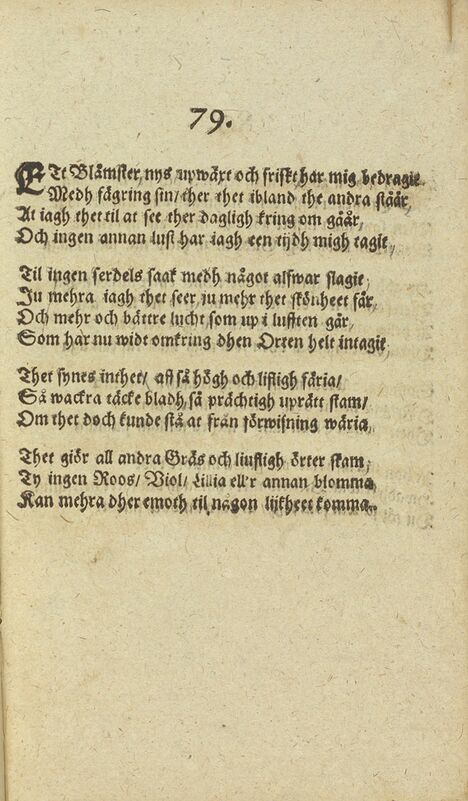 79.
ETt Blämster, nys upwäxt och friskt har mig bedragit
Medh fägring sin/ ther thet ibland the andra stäär,
At iagh thet til at see ther dagligh kring om gäär,
Och ingen annan lust har iagh een tijdh migh tagit,
Til ingen serdels saak medh något alfwar slagit,
Ju mehra iagh thet seer, ju mehr thet skönheet fär,
Och mehr och bättre lucht som up i lufften går,
Som har nu widt omkring dhen Orten helt intagit,
Thet synes inthet/ all så högh och lifligh färia/
Så wackra täcke bladh, så prächtigh uprätt stam/
Om thet doch kunde stå at från förwißning wäria,
Thet giör all andra Gräs och liufligh örter skam,
Ty ingen Roos/ Viol/ Lillia ell'r annan blomma,
Kan mehra dher emoth til någon lijkheet komma.